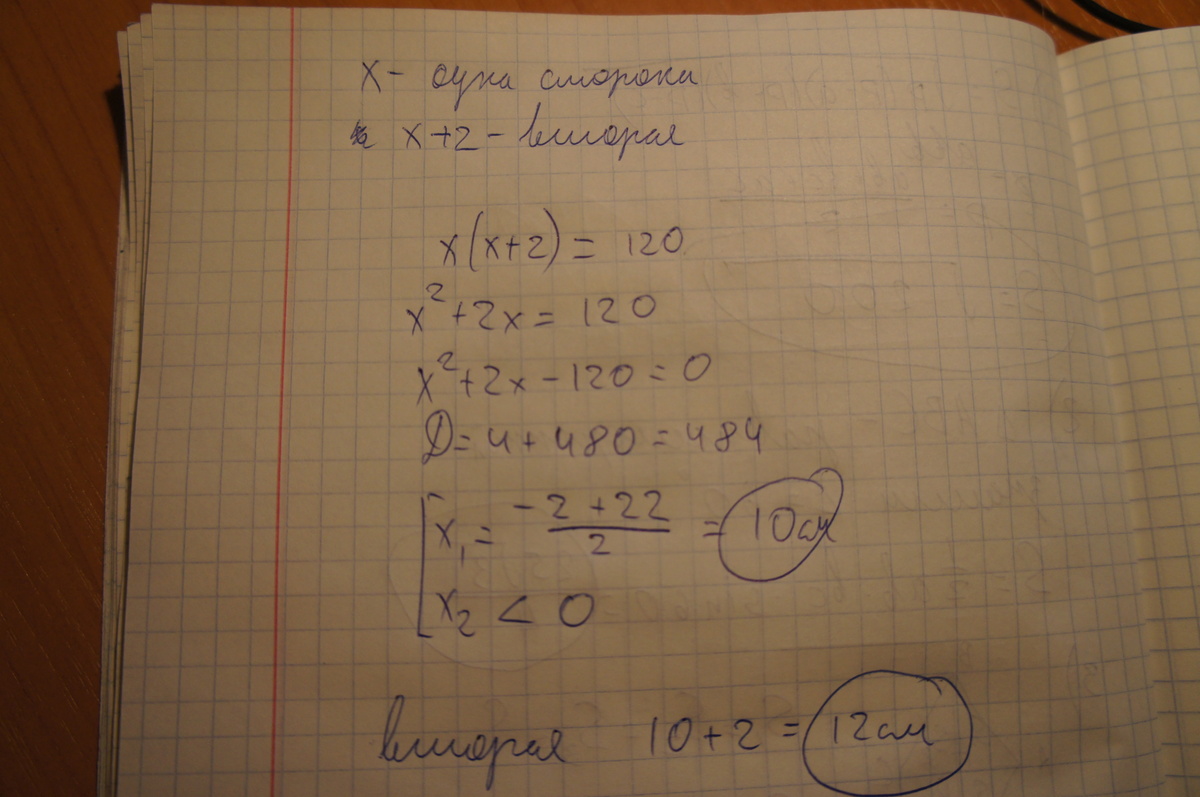 x - одна сторона
x+2 - вторая
x(x+2) = 120
x²+2x = 120
x²+2x-120=0
D=4+480=484
x₁ = -2+22/2 = 10см
x₂ < 0
вторая 10+2 = 12см